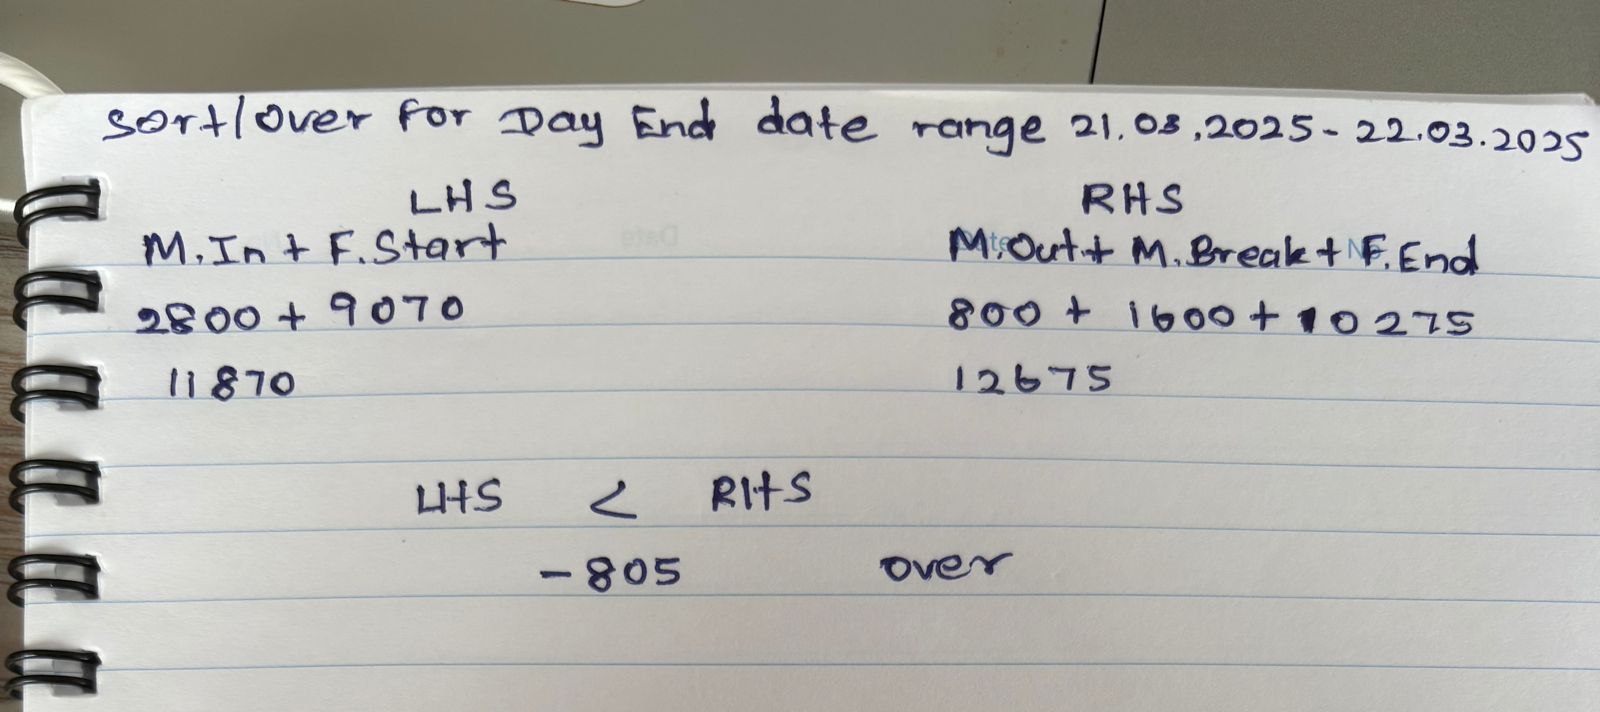 Sort/Over For Day End date range 21.03.2025 - 22.03.2025
LHS RHS
M.In + F.Start M.Out + M.Break + F.End
2800 + 9070 800 + 1600 + 10275
11870 12675
LHS < RHS
-805 over